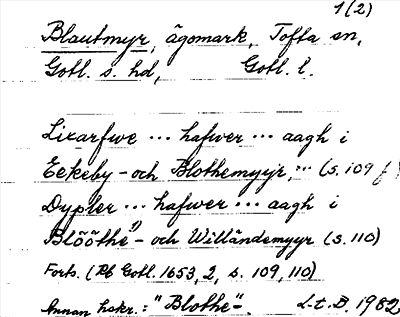 1(2)
Blautmyr, ägomark, Tofta sn,
Gotl. s. hd, Gotl. l.
Lixarfwe ... hafwer ... aagh i
Eekeby- och Blothemyyr, ... (s. 109 f)
Dypler ... hafwer ... aagh i
Blööthe"- och Willändemyyr (s. 110)
Forts. (Rb Gotl. 1653, 2, s. 109, 110)
Annan hskr.: "Blothe"- L.t.D. 1982